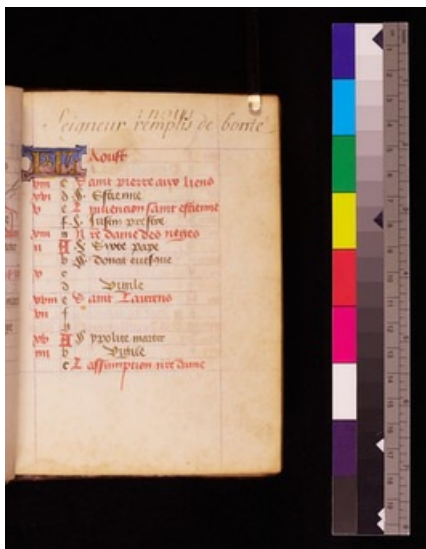 nous
Seigneur remplis de bonte
KL Aoust
viii c Saint pierre aux liens
xvi d S Estienne
v e L invencion saint estienne
f S
viii g nre dame des neges
ii A S Sixte pape
b S donat evesque
v c
d Vigile
xviii e Saint Laurens
vii f
g
xv A S ypolite martir
iiii b Vigile
c L assumption nre dame